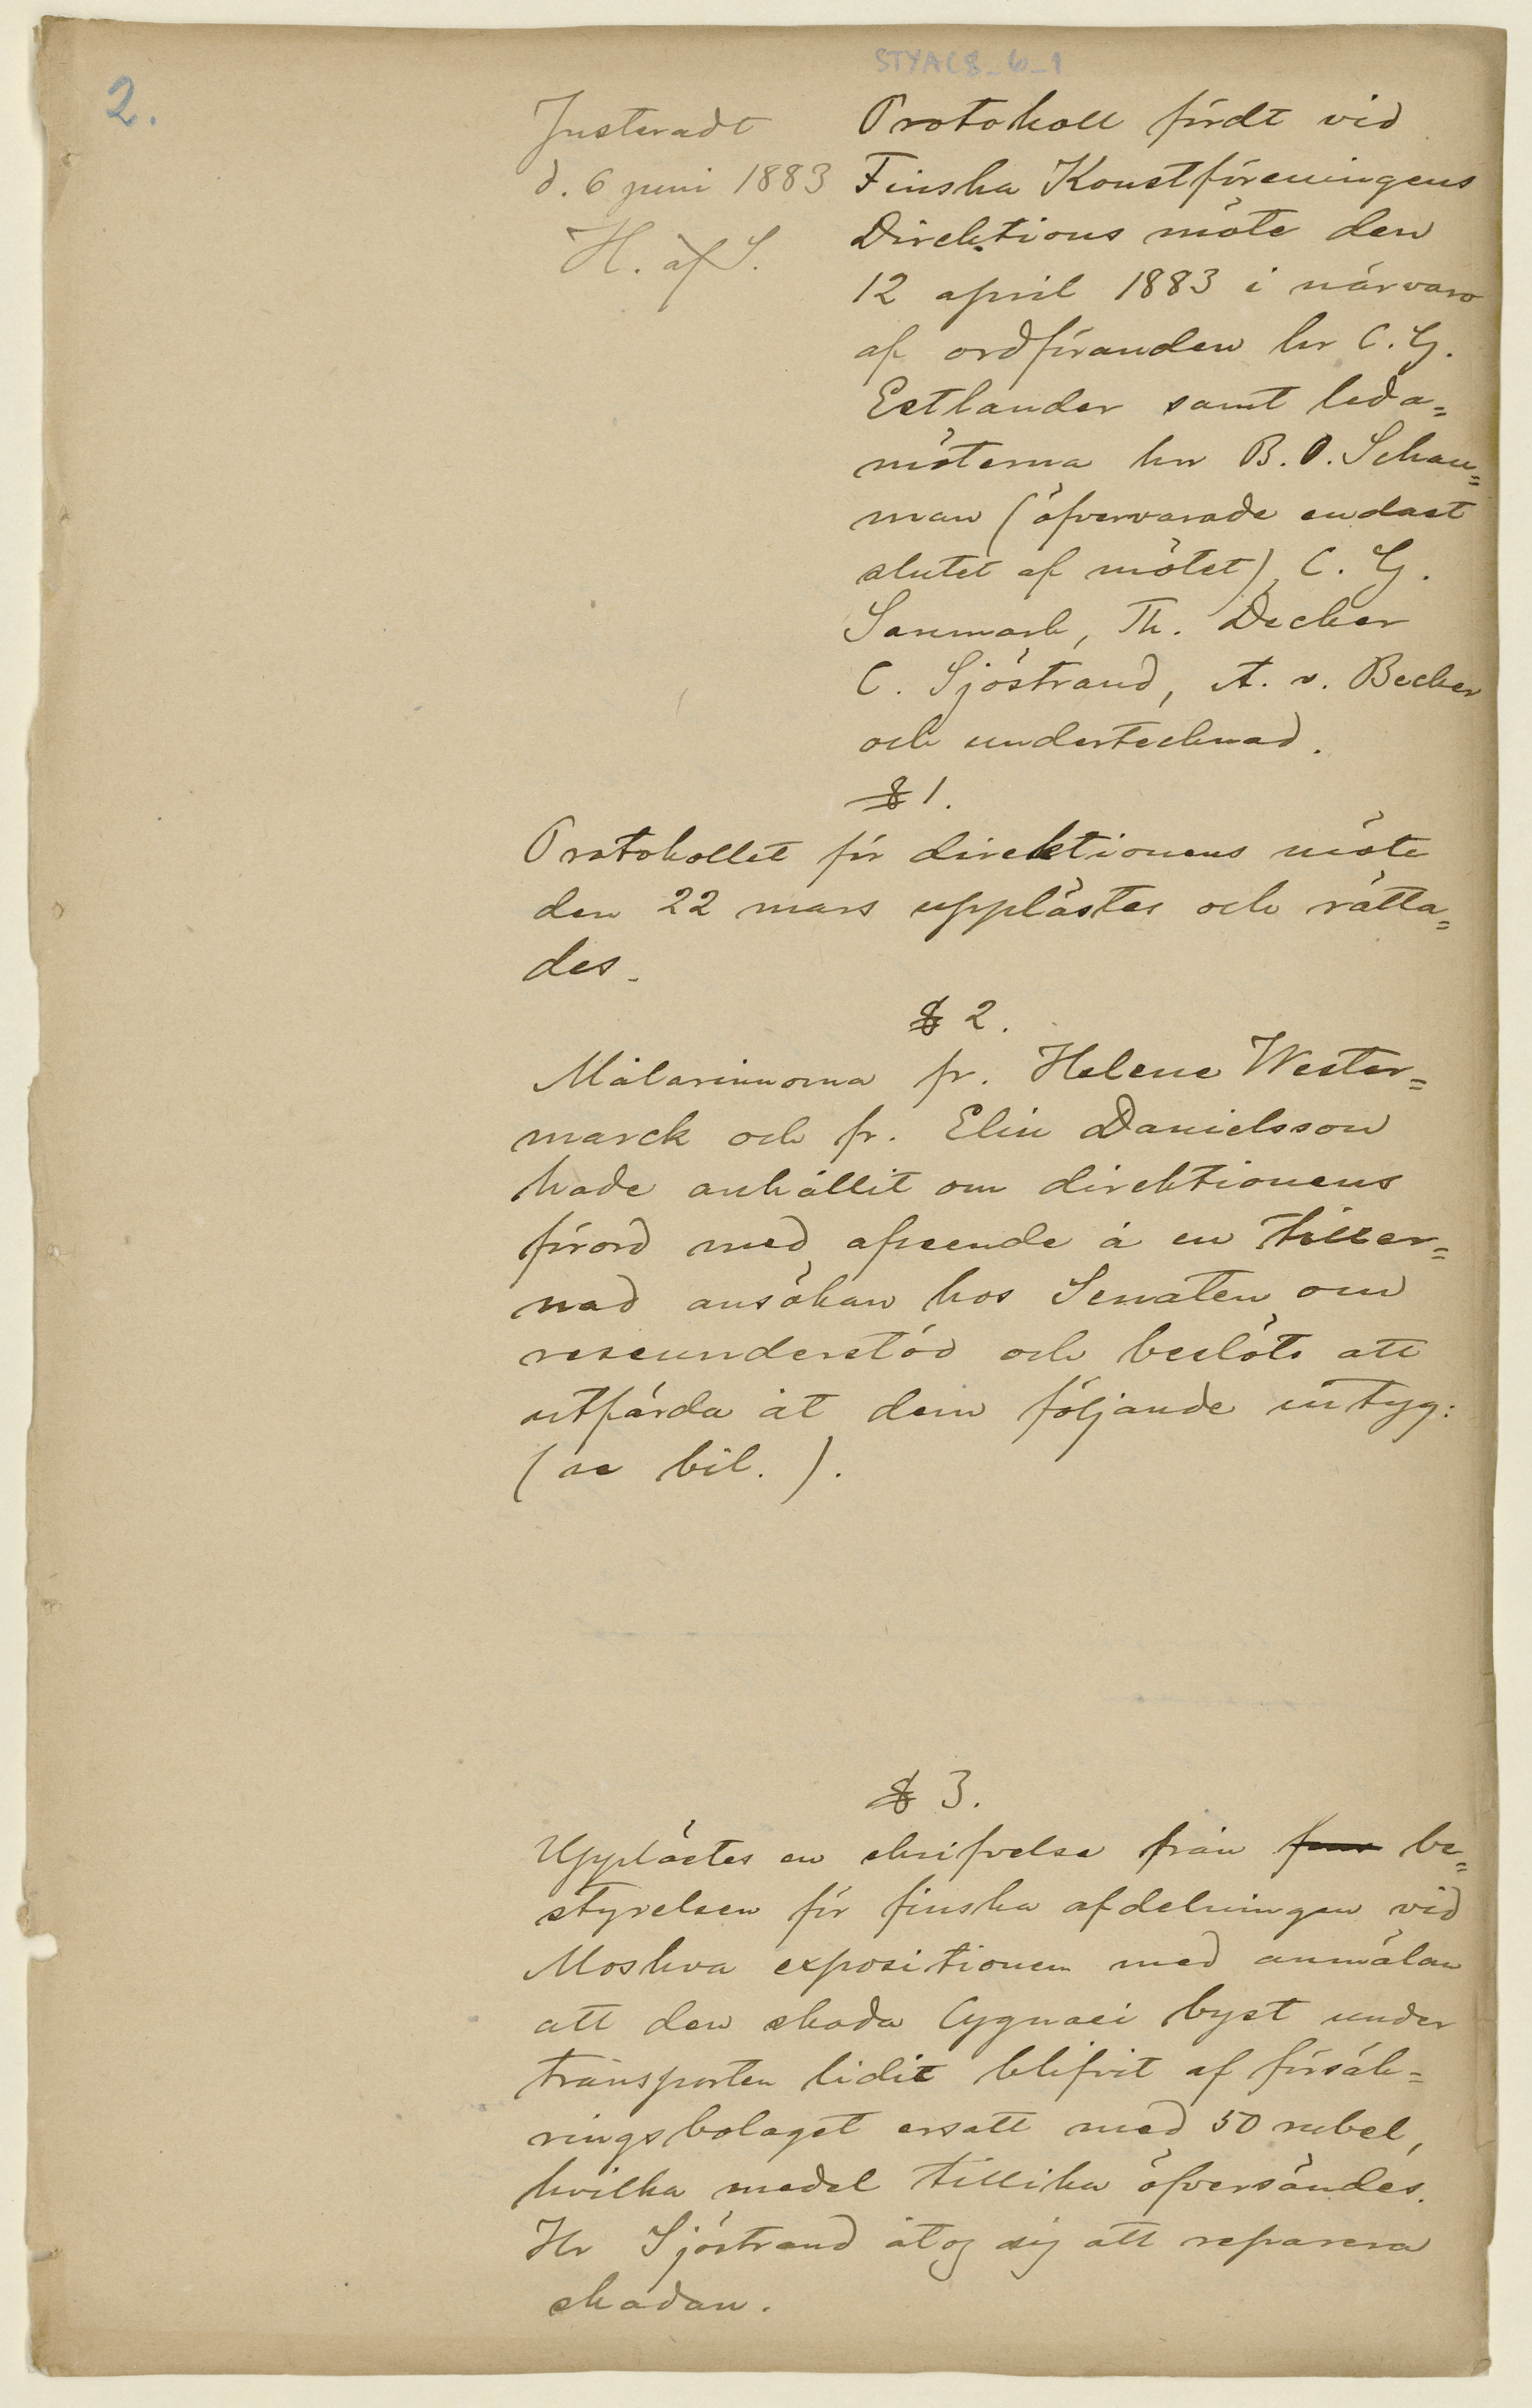 STYAC8_6_1
2.
Justeradt
d. 6 juni 1883
H. af S.
Protokoll fördt vid
Finska Konstföreningens
Direktions möte den
12 april 1883 i närvaro
af ordföranden hr C. G.
Estlander samt leda=
möterna hrr B. O. Schau=
man (öfvervarade endast
slutet af mötet), C. G.
Sanmark, Th. Decker
C. Sjöstrand, A. v. Becker
och undertecknad.
§ 1.
Protokollet för direktionens möte
den 22 mars upplästes och rätta=
des.
§ 2.
Målarinnorna fr. Helene Wester=
marck och fr. Elin Danielsson
hade anhållit om direktionens
förord med afseende å en tiller=
nad ansökan hos Senaten om
reseunderstöd och beslöts att
utfärda åt dem följande intyg:
(se bil. ).
§ 3.
Upplästes en skrifvelse från be=
styrelsen för finska afdelningen vid
Moskva expositionen med anmälan
att den skada Cygnaei byst under
transporten lidit blifvit af försäk=
ringsbolaget ersatt med 50 rubel,
hvilka medel tillika öfversändes.
Hr Sjöstrand åtog sig att reparera
skadan.